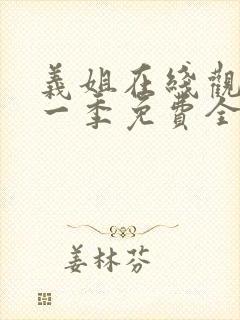 義姐在綫觀
一季免費全
姜林芬